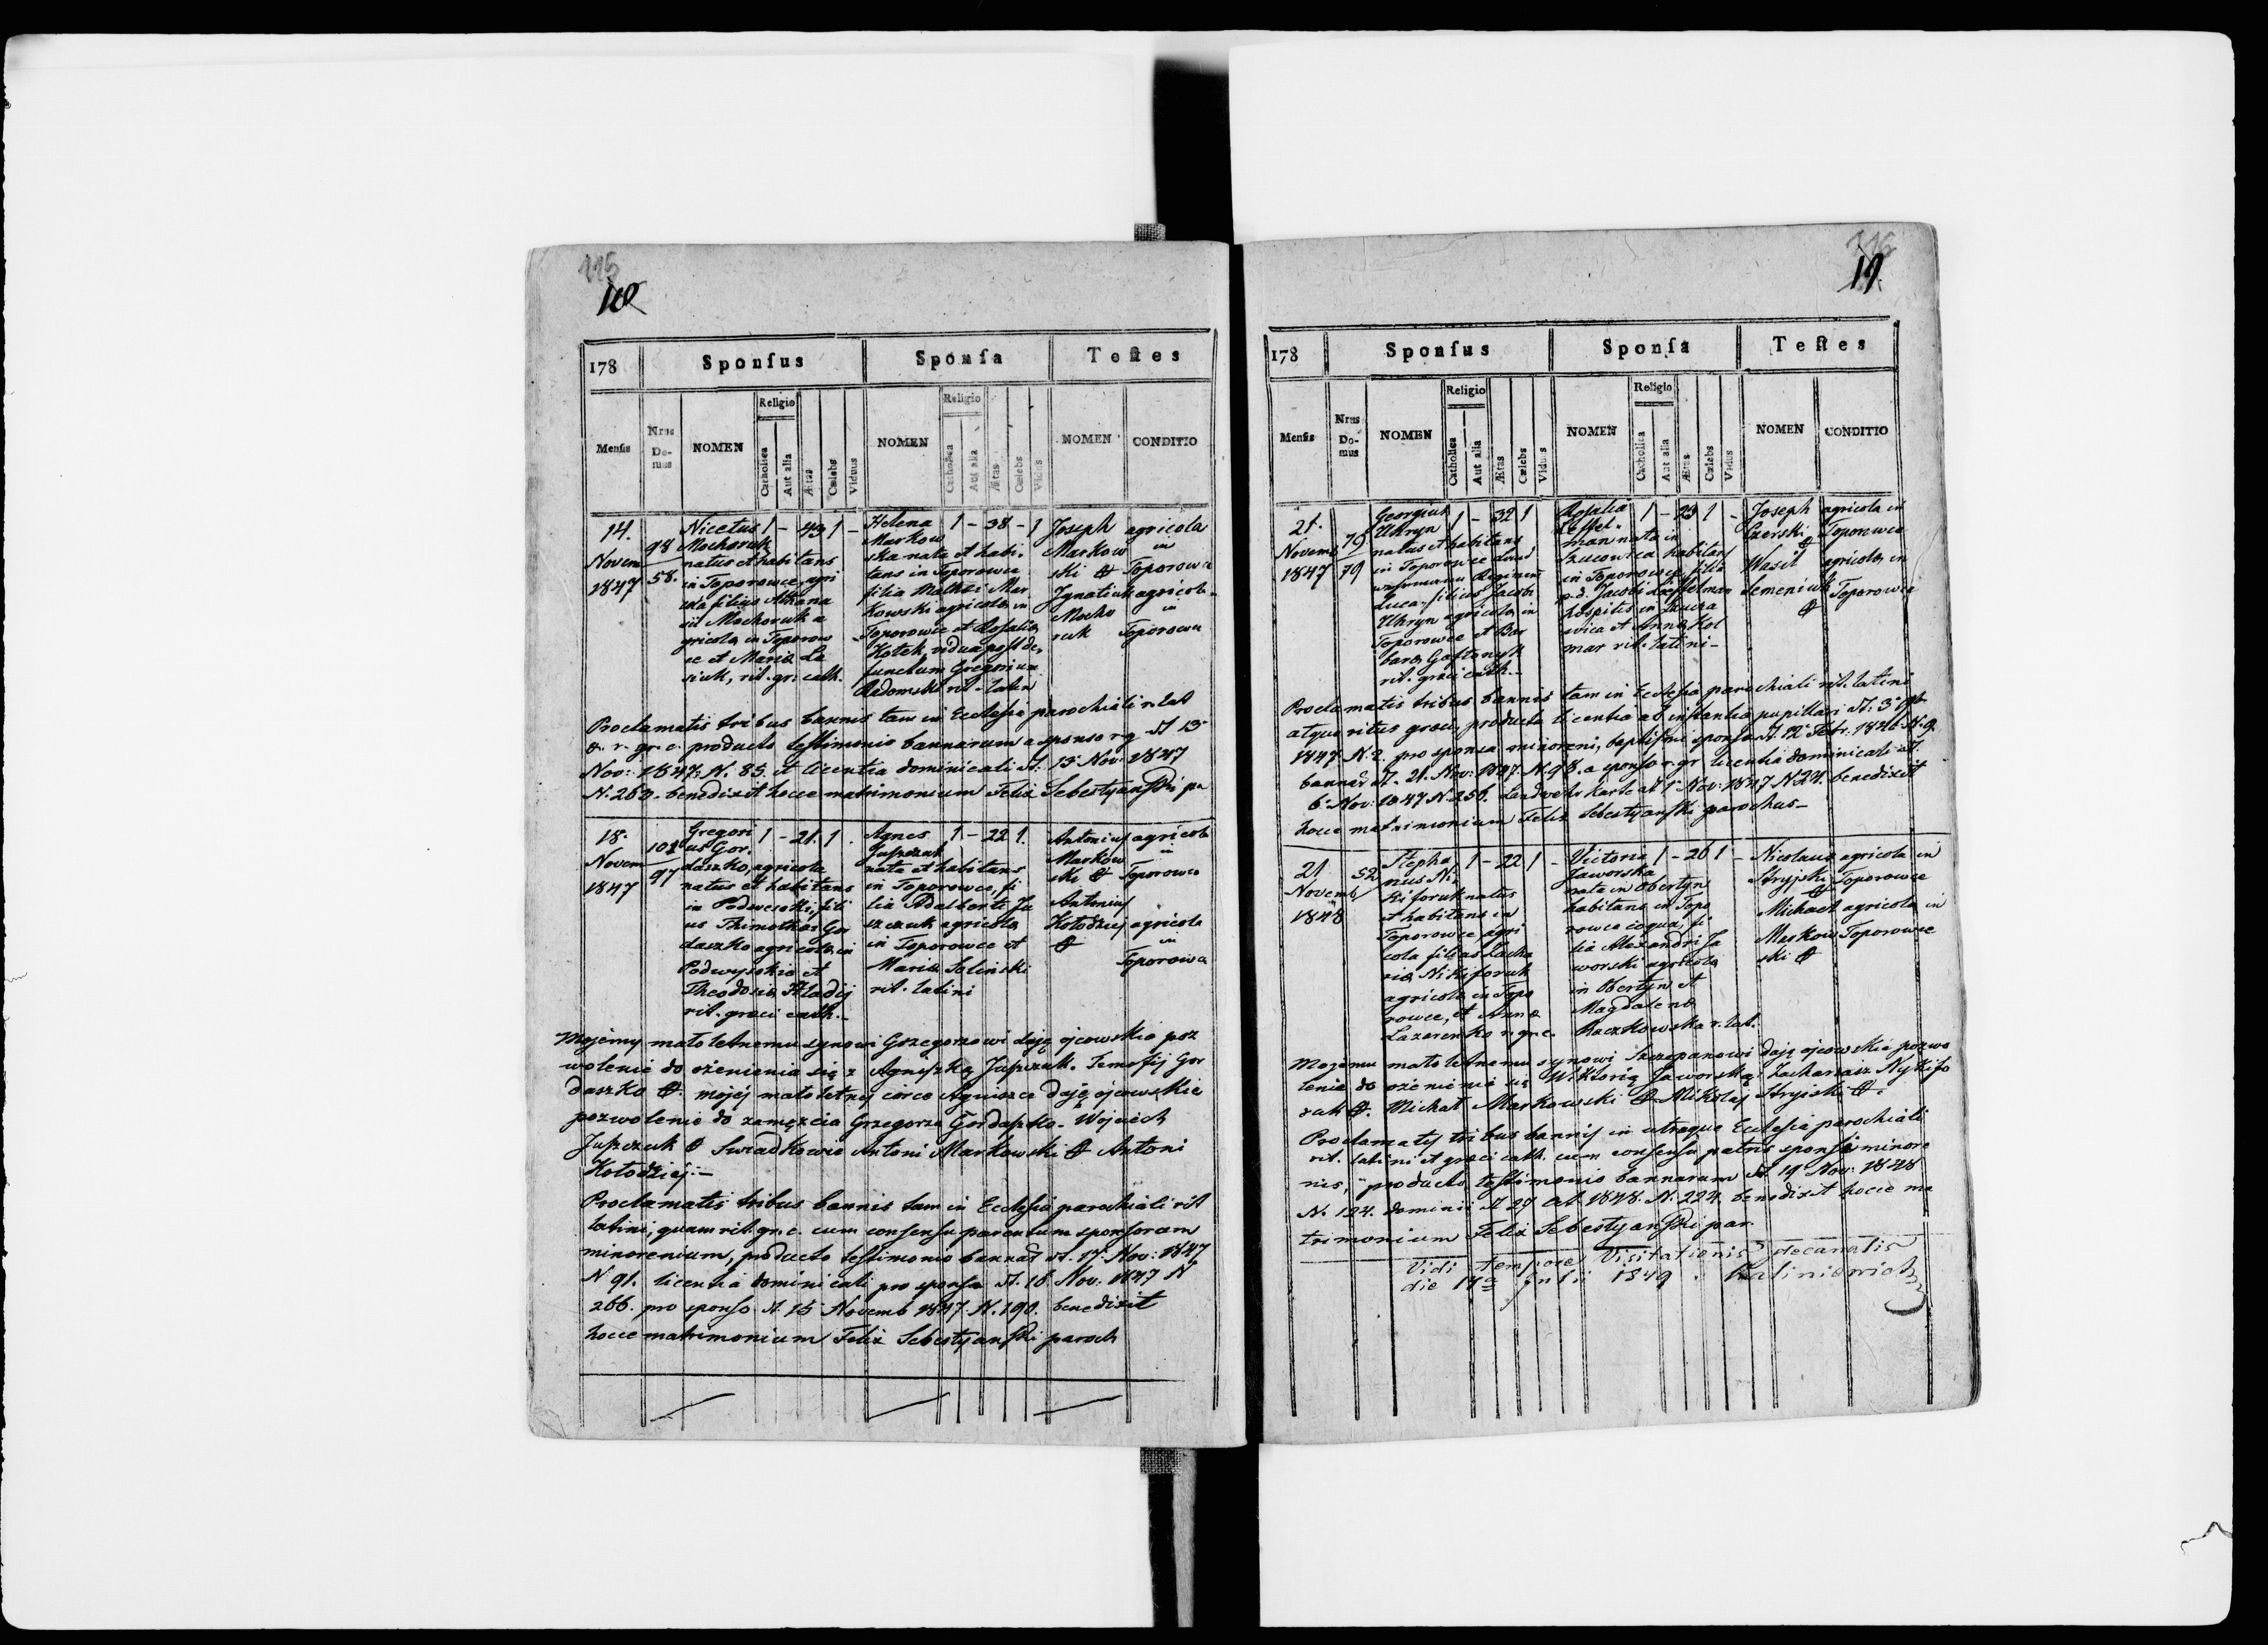 115
10
178
Sponſus
Sponſa
Teſtes
Menſis
Nrus Do-mus
NOMEN
Religio
Catholica
Aut alia
Ætas
Cœlebs
Viduus
NOMEN
Religio
Catholica
Aut alia
Ætas
Cœlebs
Vidua
NOMEN
CONDITIO
14.
Novem
1847
98
58.
Nicetus 1 - 43 1 -
Mochoruk
natus et habitans
in Toporowce, agri
cola filius Athana
sii Mochoruk a
gricola in Toporow
ce et Maria La
siuk, rit. gr. cath.
Helena 1 - 38 - 1
Markow
ska nata et habi-
tans in Toporowce
filia Mathei Mar
kowski agricola in
Toporowce et Rosalia
Kotek vidua post de,
functum Gregorium
Radomski rit. latin
Joseph
Markow
ski ✝
Ignatius
Mocho
ruk
agricola
in
Toporowce
agricola
in
Toporowce
Proclamatis tribus bannis tam in Ecclesia parochiali r. lat
q. r. gr. c. producto testimonio bannarum a sponso r g. d 13
Nov: 1847 N. 85 et licentia dominicali d. 13 Nov: 1847
N. 260. benedixit hocce matrimonium Felix Sebestyański pa
18.
Novem
1847
102
97
Gregori 1 - 21. 1.
us Gor.
daszko, agricola
natus et habitans
in Podwesoki, fili
us Thimothei Gor
daszko agricola in
Podwysokie et
Theodosia Hladij
rit. graeci cath.-
Agnes 1 - 22 1.
Juszczuk
nata et habitans
in Toporowce, fi
lia Adalberti Ju
szczuk agricola
in Toporowce et
Maria Solinski
rit. latini
Antonius
Markow
ski ✝
Antonius
Kołodziej
✝
agricola
in
Toporowce
agricola
in
Toporowce
Mojemu małoletnemu synowi Grzegorzowi daję ojcowskie poz
wolenie do ożenienia się z Agnieszką Juszczuk. Temofij Gor
daszko ✝. mojej małoletnej córce Agnieszce daję ojcowskie
pozwolenie do zamęzcia Grzegorza Gordaszko - Wojciech
Juszczuk ✝ Swiadkowie Antoni Markowski ✝ Antoni
Kołodziej.-
Proclamatis tribus bannis tam in Ecclesia parochiali rit
latini, quam rit. gr. c. cum consensu parentum sponsorum
minorenium, producto testimonio bannar d. 17. Nov: 1847
N 91. licentia dominicali pro sponsa d. 16 Nov: 1847 N
266. pro sponso d. 15 Novemb 1847 N. 190. benedixit
hocce matrimonium Felix Sebestyański paroch
116
11
178
Sponſus
Sponſa
Teſtes
Menſis
Nrus Do-mus
NOMEN
Religio
Catholica
Aut alia
Ætas
Cœlebs
Viduus
NOMEN
Religio
Catholica
Aut alia
Ætas
Cœlebs
Vidua
NOMEN
CONDITIO
21.
Novemb
1847
79
79
Georgius 1 - 32 1
Uhryn
natus et habitans
in Toporowce
Luca. filius Jacobi
Uhryn agricola in
Toporowce et Bar
bara
rit. graeci cath.-
Rosalia 1 - 23 1 -
Leffel-
man nata in
habitans
in Toporowce, filia
p. d. Jacobi Loeffelman
hospitis in
wica et Anna Kol
mar rit. latini-
Joseph
Czerski
✝
Wasil
Semeniuk
✝
agricola in
Toporowce
agricola in
Toporowce
Proclamatis tribus bannis tam in Ecclesia parochiali rit. latini
atque ritus graeci, producta licentia ab instantia pupillari d. 3
1847 N. 2. pro sponsa minoreni, baptismi sponsa d. 12 Febr. 1826 N. 9
bannar d. 21. Nov: 1847 N. 98. a sponso r. gr licentia dominicali d.
6. Nov: 1847 N. 256. Landwehr Karte d 1 Nov: 1847 N 24. benedixit
hocce matrimonium Felix Sebestyański parochus-
21
Novemb
1848
52
Stepha 1 - 22 1 -
nus Ni,
kiforuk natus
et habitans in
Toporowce, agri
cola filius Zacha
ria Nikiforuk
agricola in Topo
rowce, et Anna
Lazarenko r. gr. c.
Victoria 1 - 26 1 -
Jaworska
nata in Obertyn
habitans in Topo
rowce fi
lia Alexandri Ja
worski agricola
in Obertyn et
Magdalena
Raczkowska r. lat.
Nicolaus
Stryjski
✝
Michael
Markow
ski ✝
agricola in
Toporowce
agricola in
Toporowce
Mojemu małoletnemu synowi Szczepanowi daję ojcowskie pozwo
lenie do ożenienia się Wiktorią Jaworską. Zachariasz Nykifo
ruk ✝. Michał Markowski ✝ Mikołaj Stryjski ✝.
Proclamatis tribus bannis in utraque Ecclesia parochiali
rit. latini et graeci cath. cum consensu patris sponsi minore
nis, producto testimonio bannarum d. 19 Nov: 1848
N. 124. dominii d 29 Oct. 1848. N. 224. benedixit hocce ma
trimonium Felix Sebestyański par.
Vidi tempore Visitationis decanalis
die 11a Julii 1849